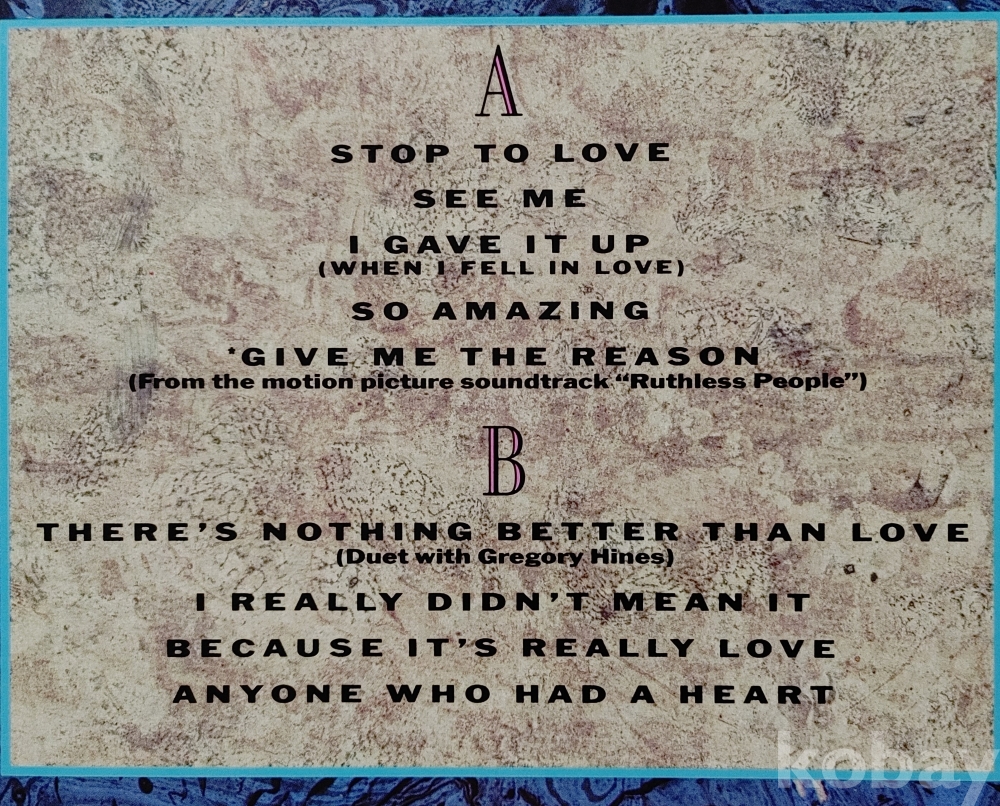 A
STOP TO LOVE
SEE ME
I GAVE IT UP
(WHEN I FELL IN LOVE)
SO AMAZING
*GIVE ME THE REASON
(From the motion picture soundtrack “Ruthless People”)
B
THERE’S NOTHING BETTER THAN LOVE
(Duet with Gregory Hines)
I REALLY DIDN’T MEAN IT
BECAUSE IT’S REALLY LOVE
ANYONE WHO HAD A HEART
kobay